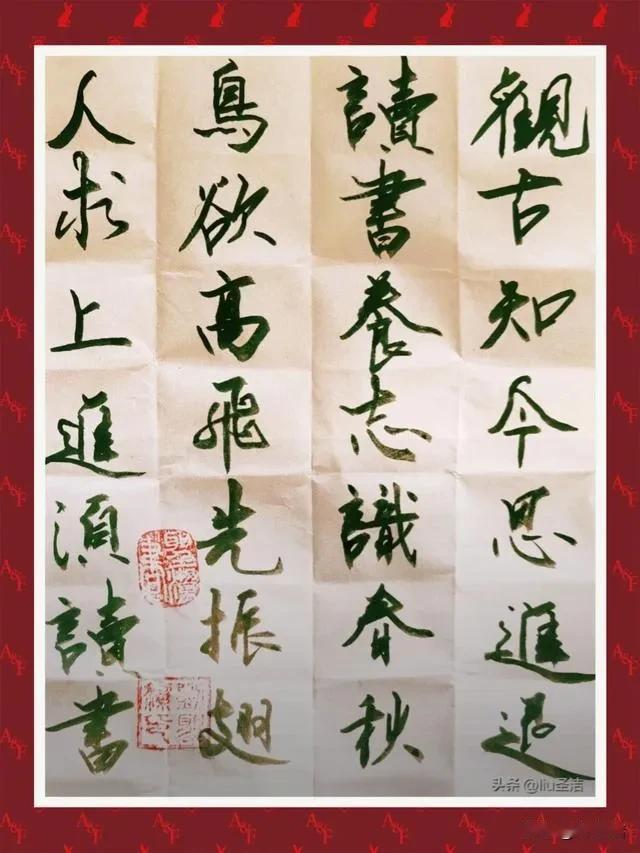 觀古知今思進退
讀書養志識春秋
鳥欲高飛先振翅
人求上進須讀書
头条 @liu圣洁